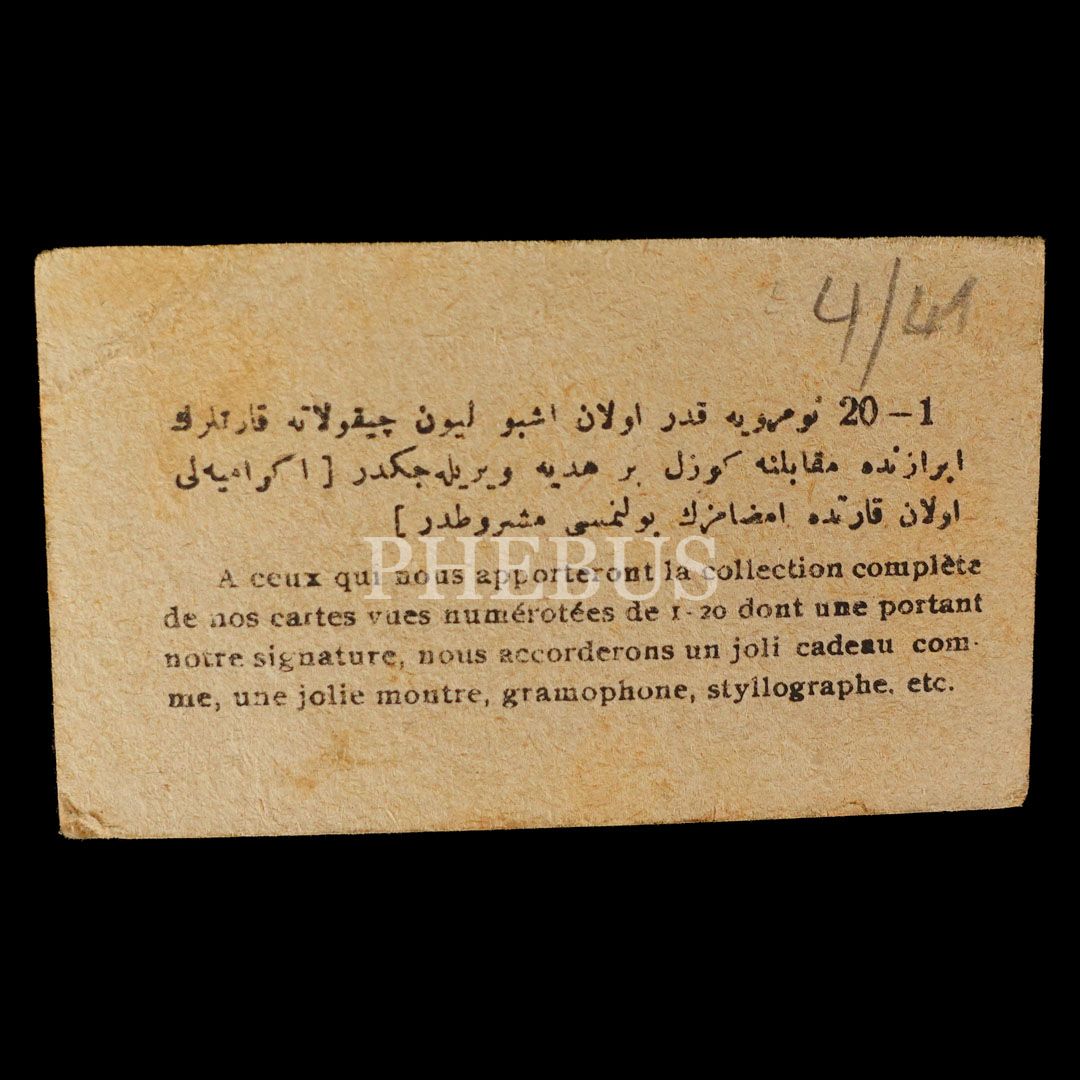 4/41
1–20 نومرویه قدر اولان اشبو لیون چیقولاته قارتلرك
ابرازنده مقابلنه كوزل بر هدیه ویریله جكدر [ اكرامیه لی
اولان قارتده امضامزك بولنمسی مشروطدر ]
PHEBUS
A ceux qui nous apporteront la collection complète
de nos cartes vues numérotées de 1-20 dont une portant
notre signature, nous accorderons un joli cadeau com-
me, une jolie montre, gramophone, styllographe. etc.